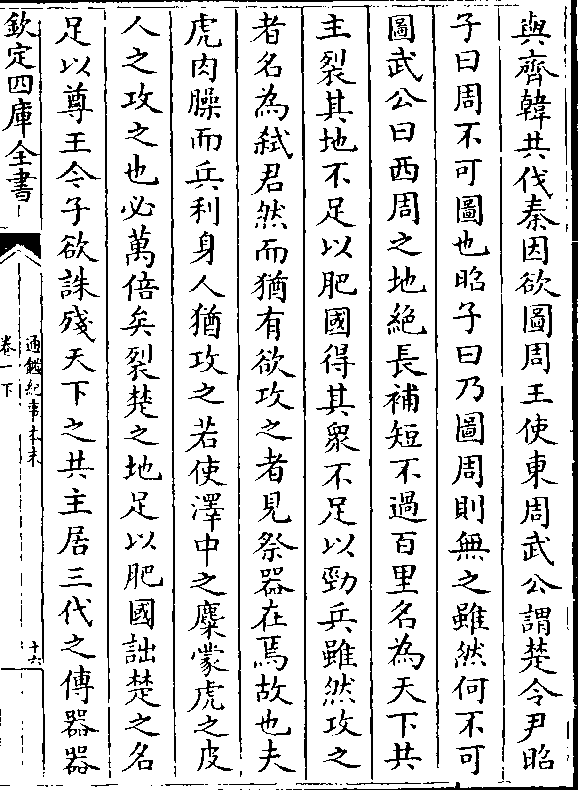 與齊韓共伐秦因欲圖周王使東周武公謂楚令尹昭
子曰周不可圖也昭子曰乃圖周則無之雖然何不可
圖武公曰西周之地絶長補短不過百里名為天下共
主裂其地不足以肥國得其衆不足以勁兵雖然攻之
者名為弑君然而猶有欲攻之者見祭器在焉故也夫
虎肉臊而兵利身人猶攻之若使澤中之麋蒙虎之皮
人之攻之也必萬倍矣裂楚之地足以肥國詘楚之名
足以尊王今子欲誅殘天下之共主居三代之傳器器
欽定四庫全書
通鑑紀事本末
卷一下
十六